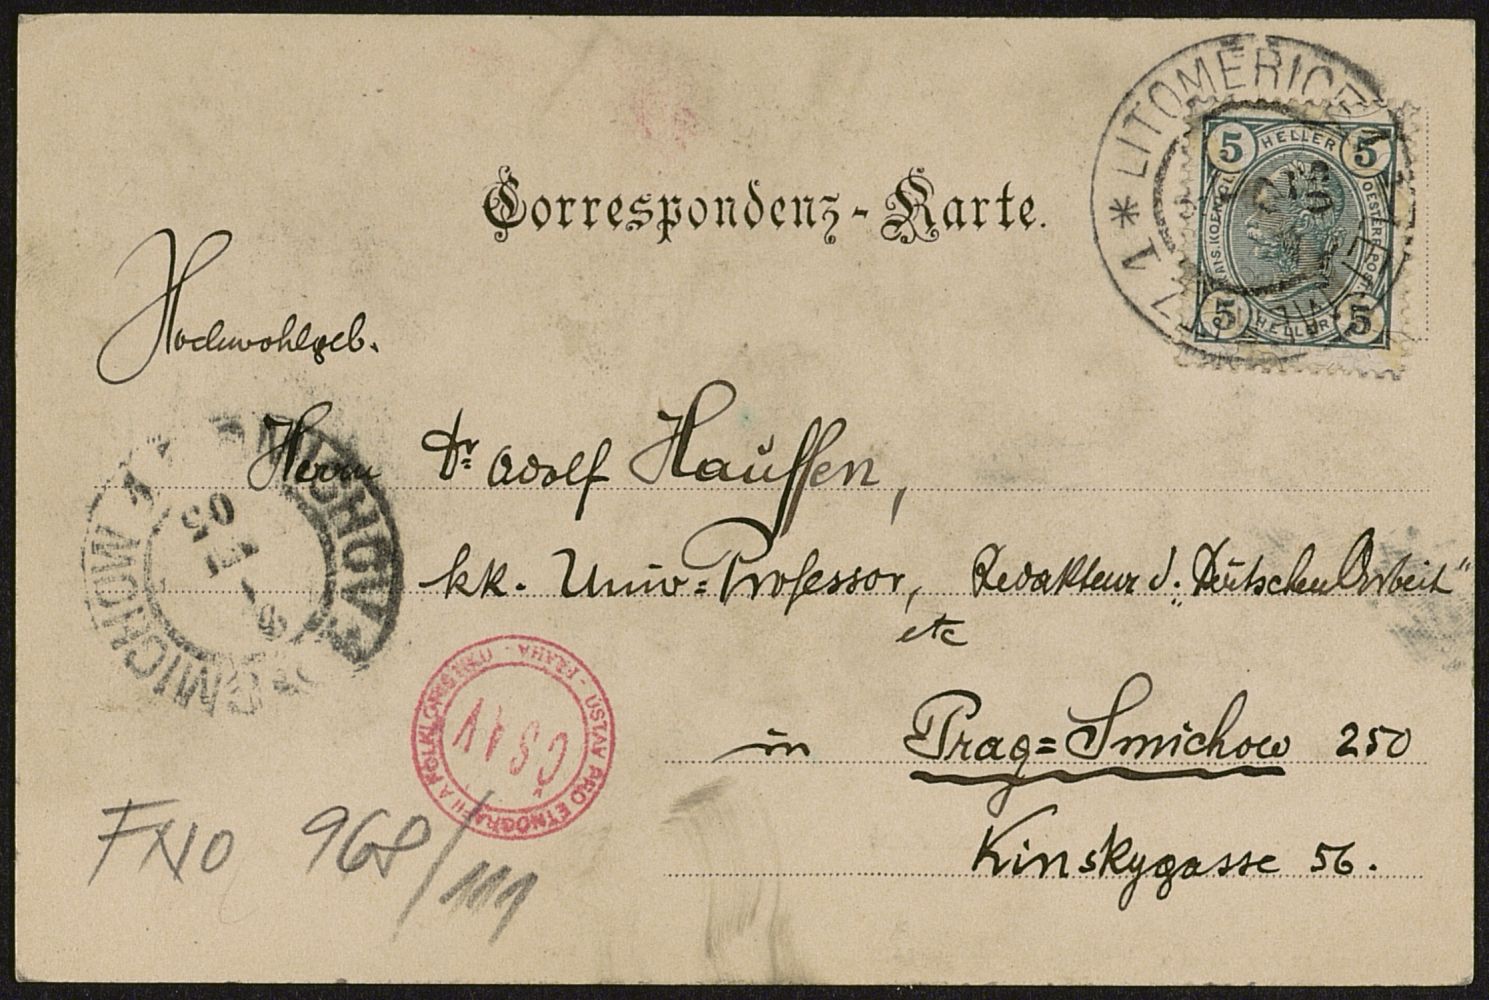 Correspondenz-Karte.
LITOMERICE
1 *
5 HELLER 5
5 HELLER 5
Hochwohlgeb.
Herrn Dr. Adolf Hauffen,
kk. Univ=Professor, Redakteur d. „Deutschen Arbeit"
etc
in Prag=Smichow 250
Kinskygasse 56.
SMICHOV
SMICHOW 1
05
ÚSTAV PRO ETNOGRAFII A FOLKLORISTIKU - PRAHA -
ČSAV
FNO 968/111